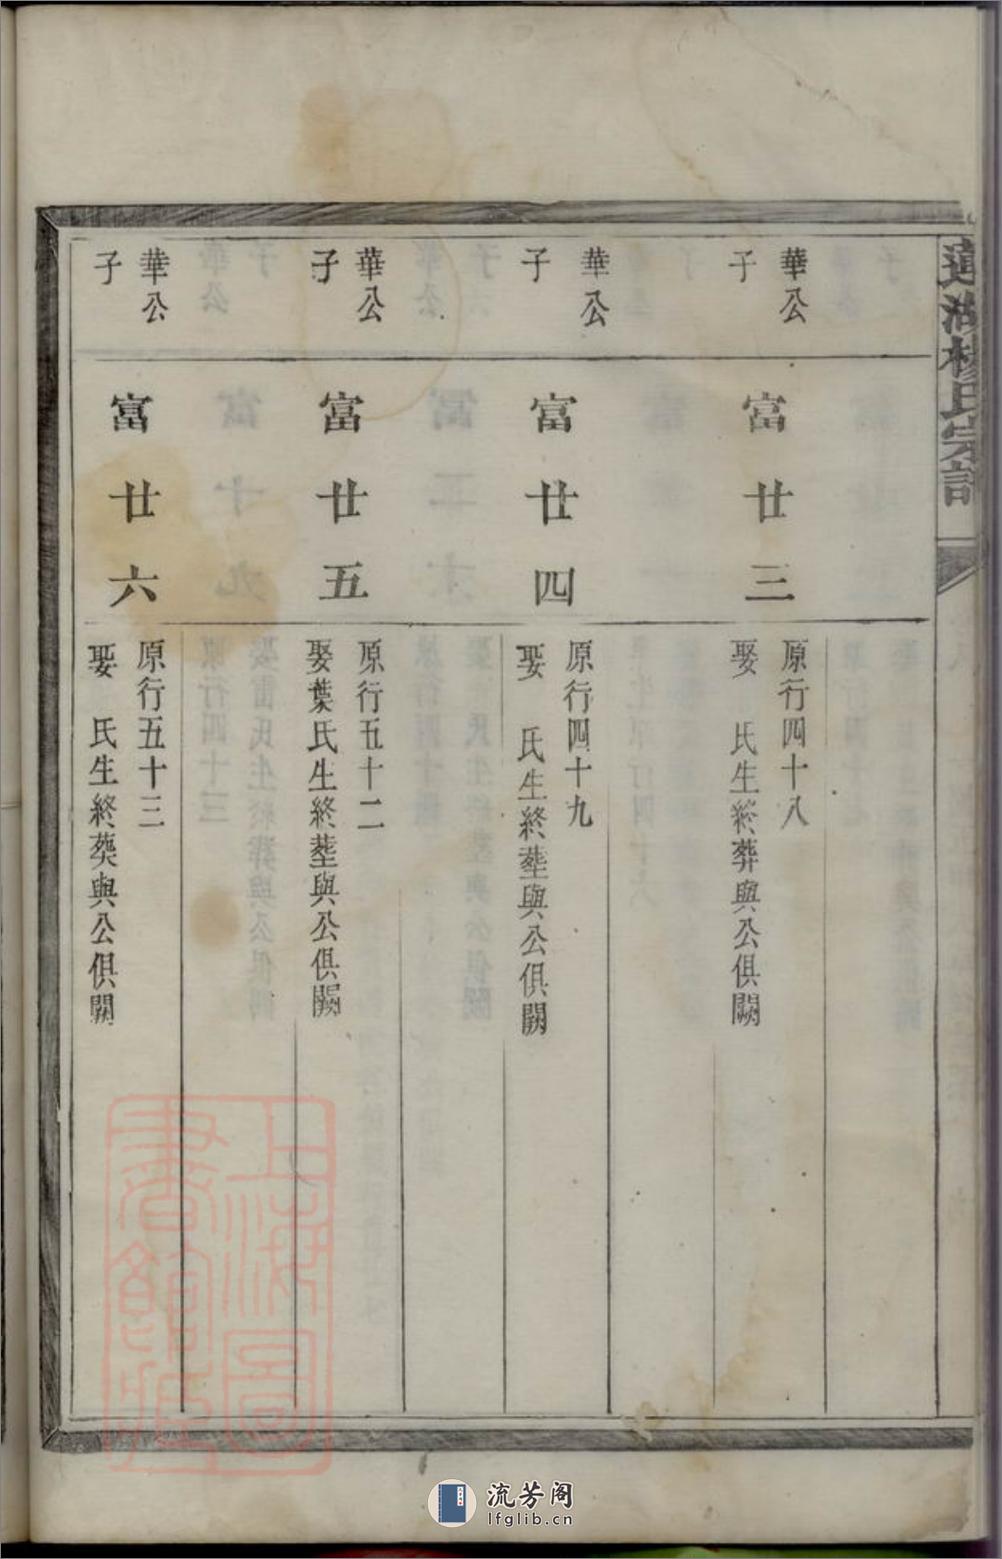 蓮湖楊氏宗譜
華公
子
富廿三
原行四十八
娶　氏生終葬與公俱闕
華公
子
富廿四
原行四十九
娶　氏生終塟與公俱闕
華公
子
富廿五
原行五十二
娶葉氏生終塟與公俱闕
華公
子
富廿六
原行五十三
娶　氏生終葬與公俱闕
上海圖
書館藏
流芳阁
lfglib.cn